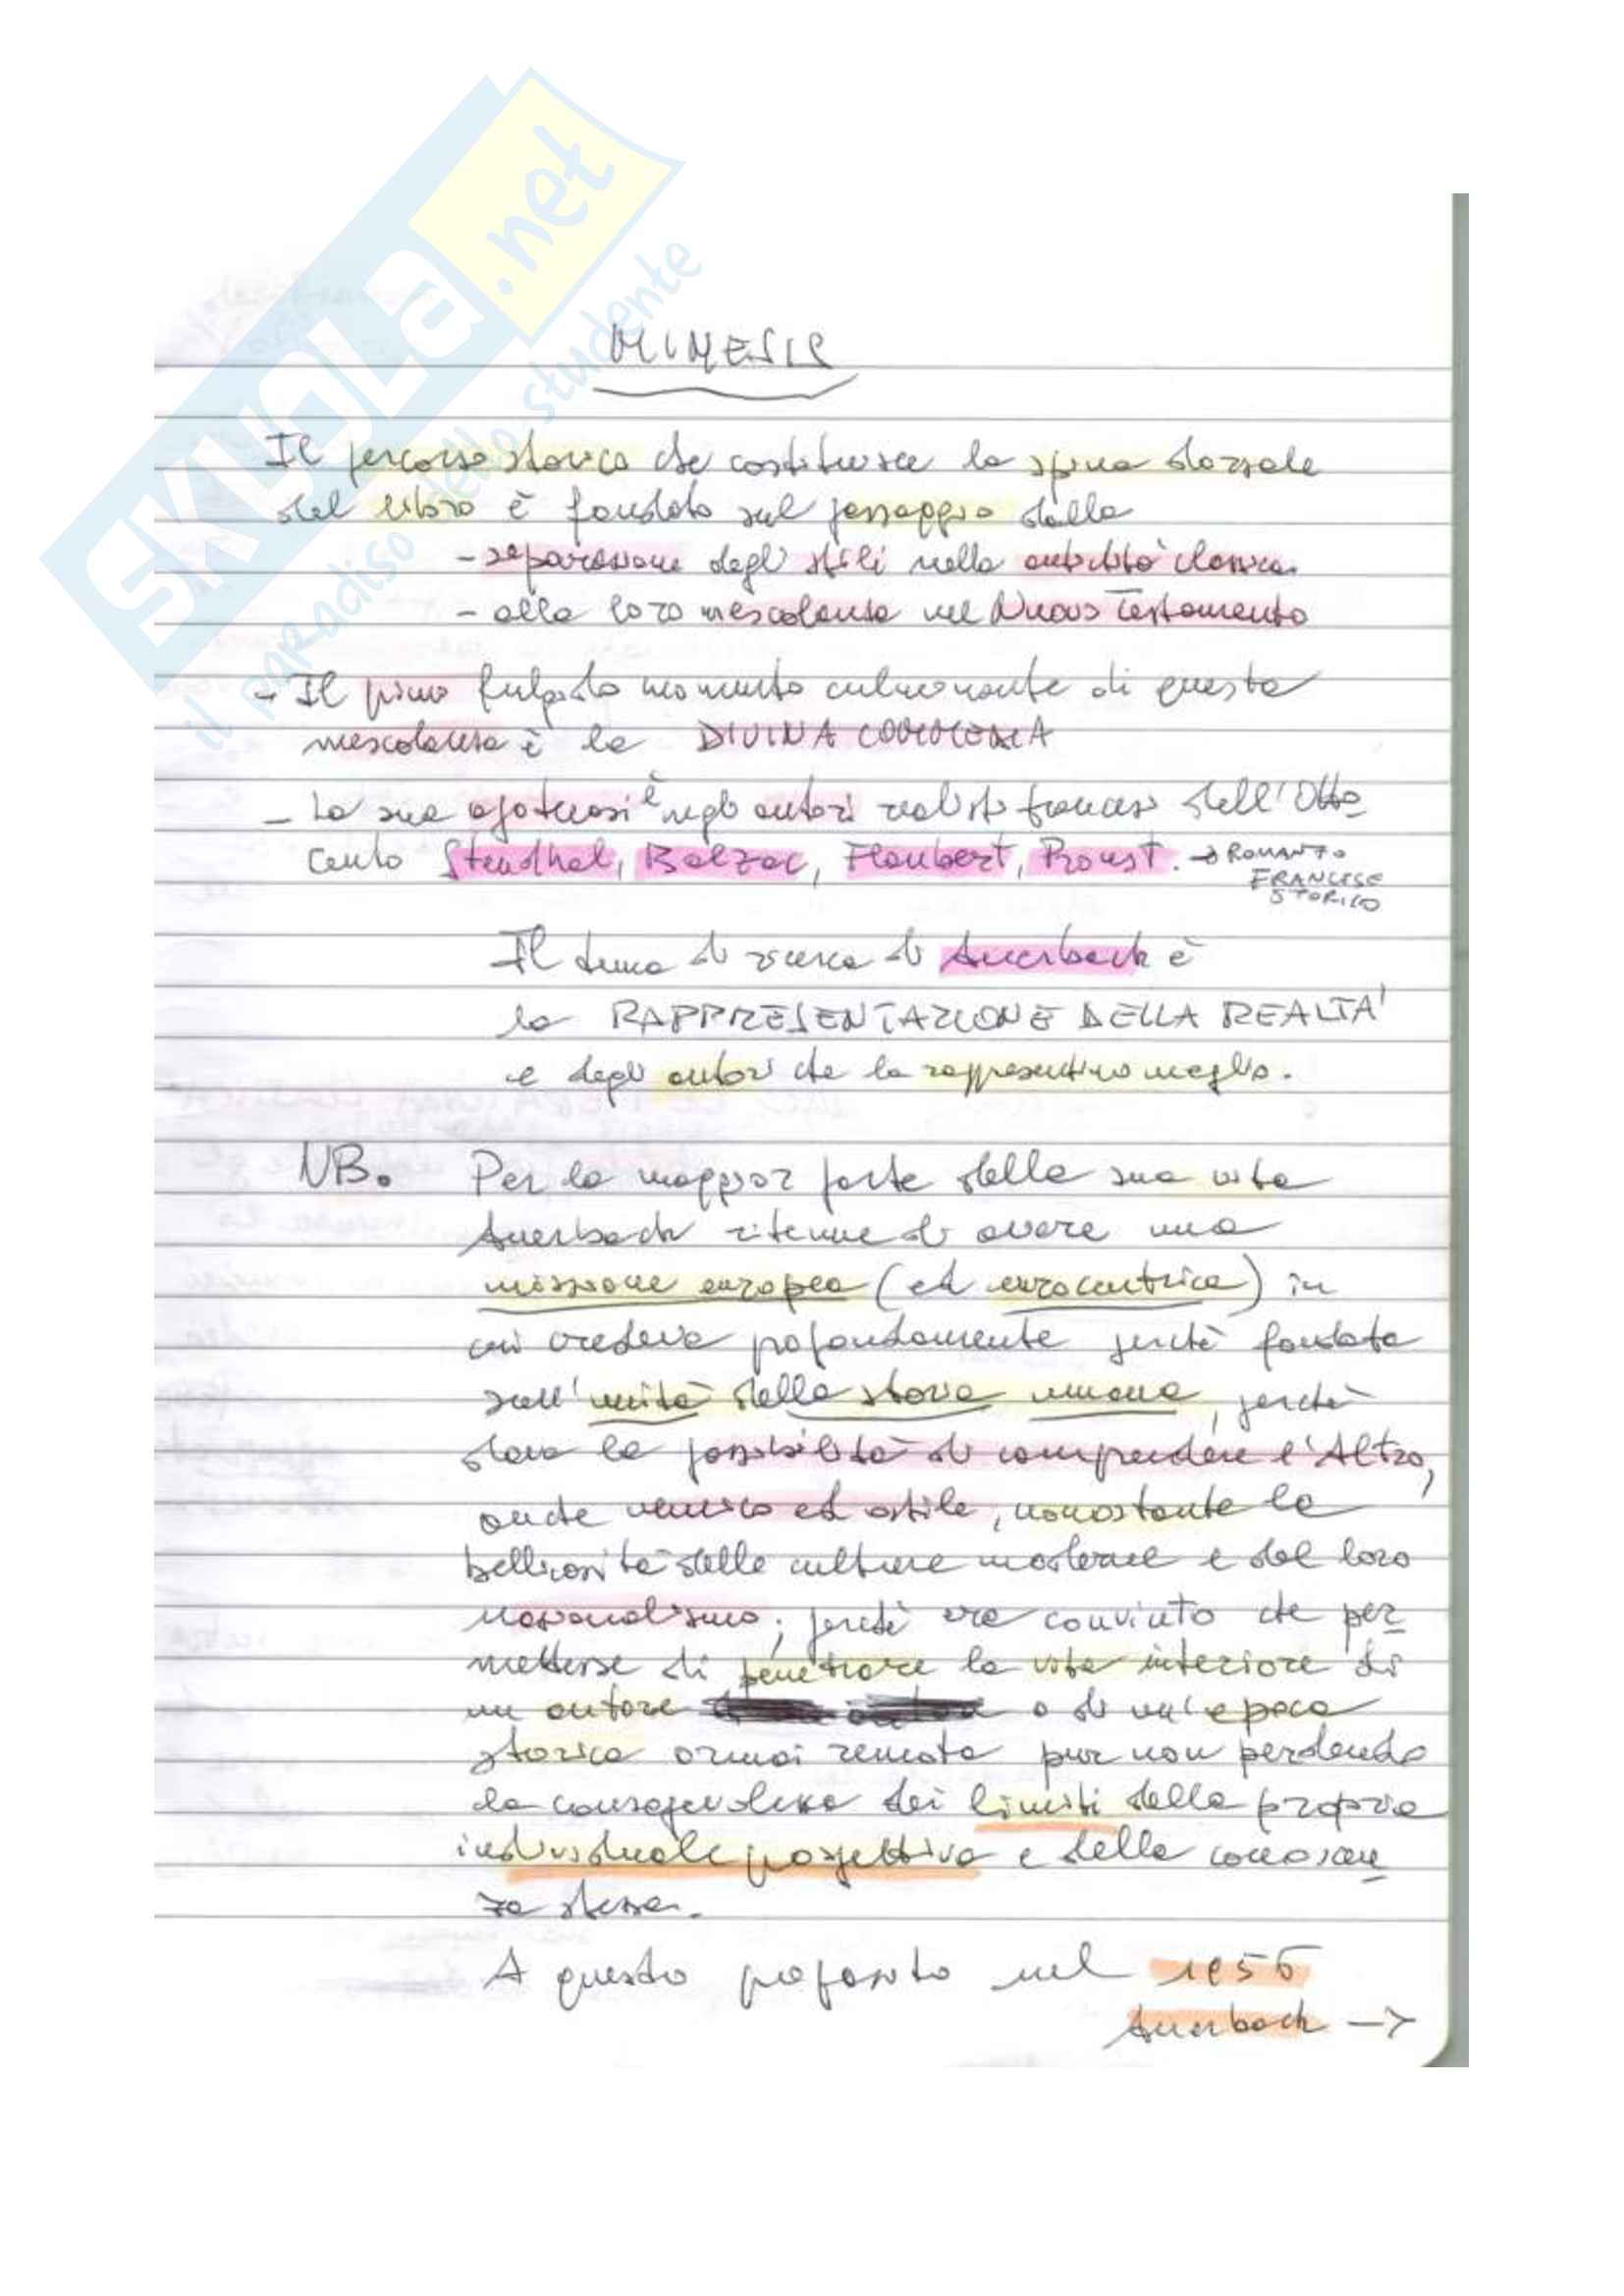 SKUOLA.net
il paradiso dello studente
MIMESIS
Il percorso storico che costituisce la spina dorsale
del libro è fondato sul passaggio dalla
- separazione degli stili nella antichità classica
- alla loro mescolanza nel Nuovo Testamento
- Il primo fulgido momento culminante di questa
mescolanza è la DIVINA COMMEDIA
- La sua apoteosi è negli autori realisti francesi dell'Otto
cento Stendhal, Balzac, Flaubert, Proust. → ROMANZO
FRANCESE
STORICO
Il tema di ricerca di Auerbach è
la RAPPRESENTAZIONE DELLA REALTA'
e degli autori che la rappresentino meglio.
NB. Per la maggior parte della sua vita
Auerbach ritenne di avere una
missione europea (ed eurocentrica) in
cui credeva profondamente perchè fondata
sull'unità della storia umana, perchè
dava la possibilità di comprendere l'Altro,
anche nemico ed ostile, nonostante la
bellicosità delle culture moderne e del loro
nazionalismo; perchè era convinto che per
mettesse di penetrare la vita interiore di
un autore o di un'epoca
storica ormai remota pur non perdendo
la consapevolezza dei limiti della propria
individuale prospettiva e della conoscen
za stessa.
A questo proposito nel 1956
Auerbach →